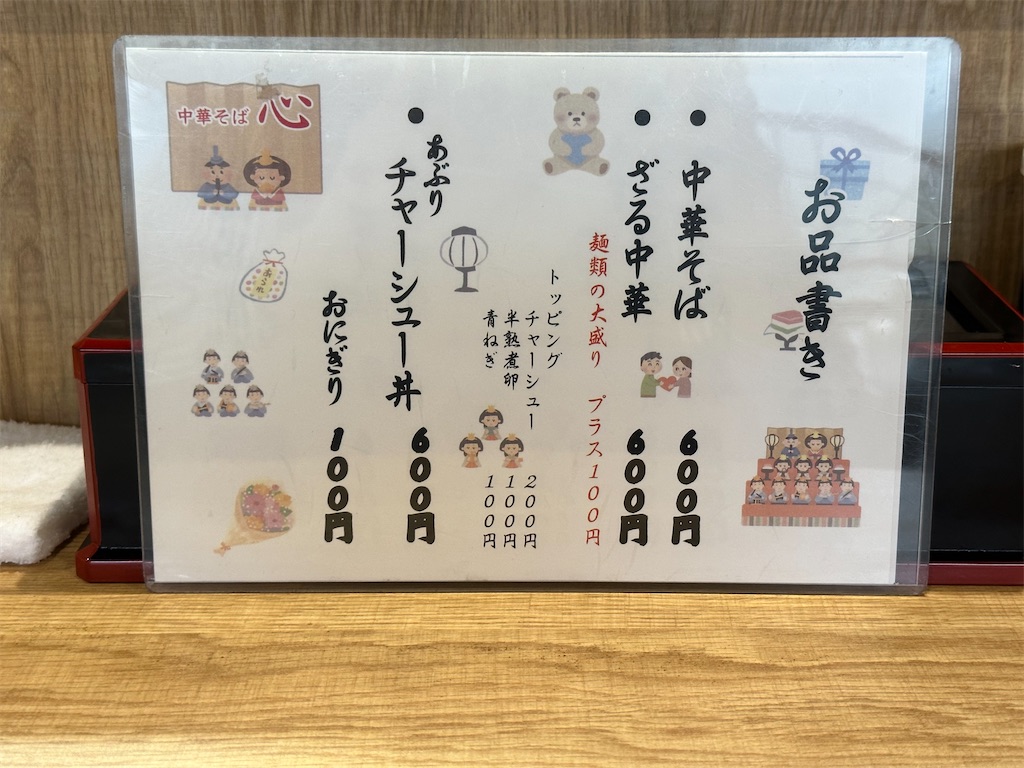 お品書き
中華そば 600円
ざる中華 600円
麺類の大盛り プラス100円
トッピング
チャーシュー 200円
半熟煮卵 100円
青ねぎ 100円
あぶり
チャーシュー丼 600円
おにぎり 100円
中華そば 心